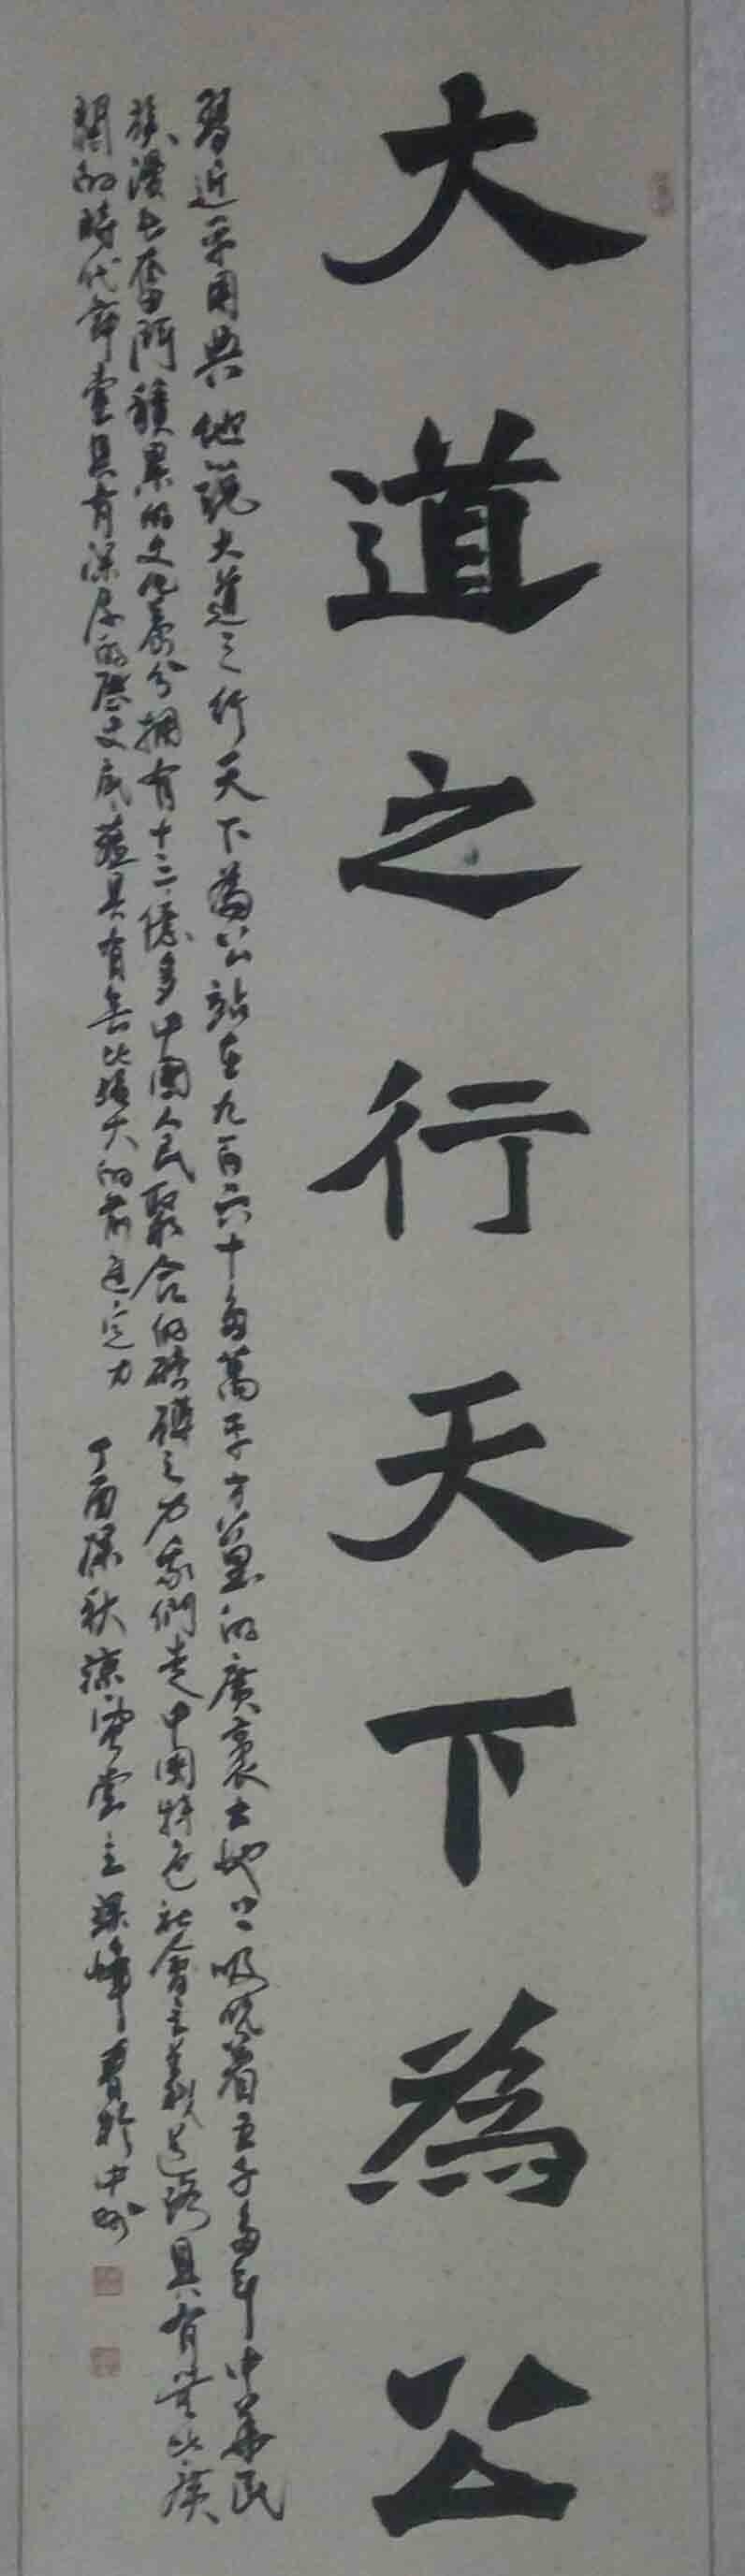 大道之行天下為公
習近平用典他說大道之行天下為公站在九百六十多萬平方公里的廣袤土地上吸吮着五千多年中華民
族漫長奮鬥積累的文化養分擁有十三億多中國人民聚合的磅礴之力我們走中國特色社會主義道路具有無比廣
闊的時代舞臺具有深厚的歷史底蘊具有無比強大的前進定力 丁酉深秋 堂主 峰書於中州